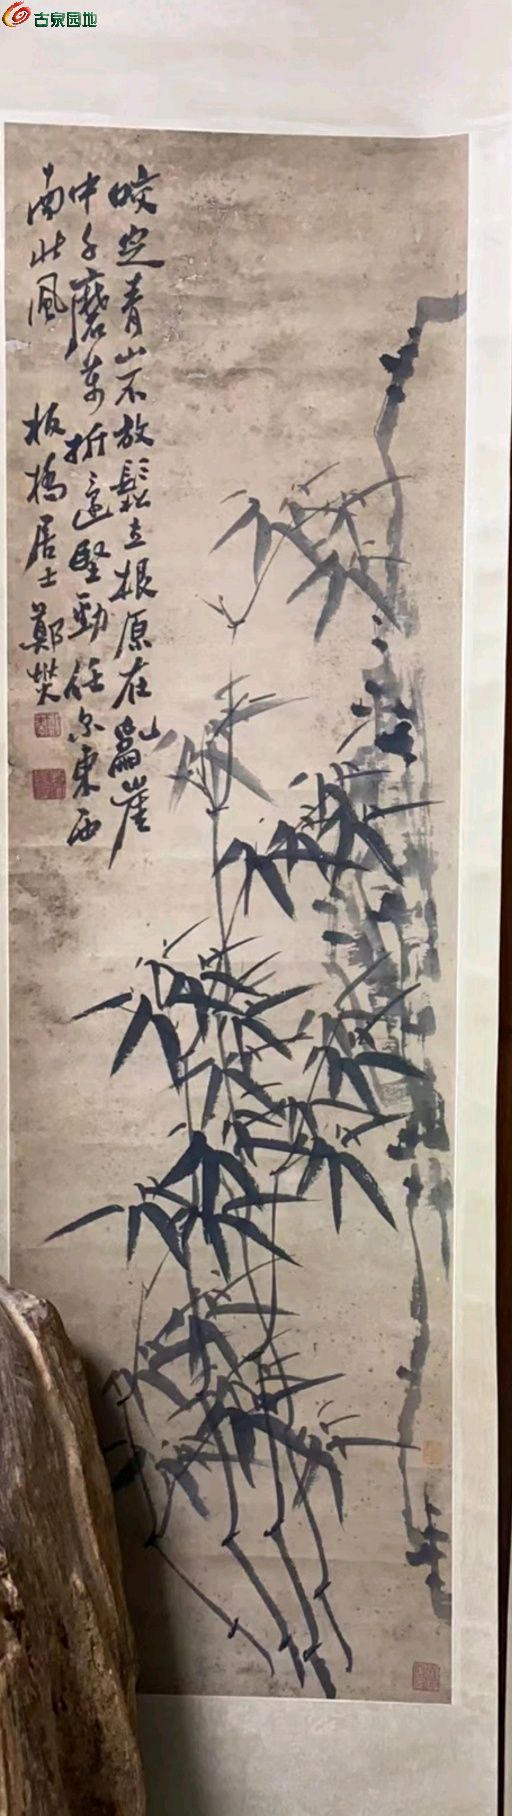 古泉园地
咬定青山不放鬆立根原在亂崖
中千磨萬折還堅勁任尔東西
南北風
板橋居士鄭燮